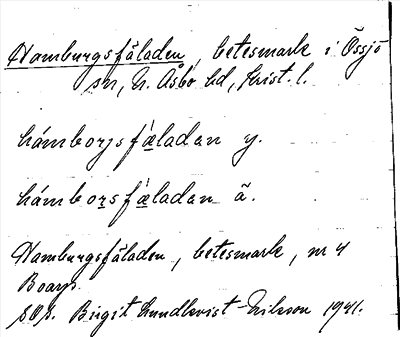 Hamburgsfäladen, betesmark i Össjö
sn, N. Åsbo hd, Krist. l.
hámborjsfæ̀ladan y.
hámborsfæ̀ladan ä.
Hamburgsfäladen, betesmark, nr 4
Boarp.
Birgit Lundkvist-Nilsson 1941.